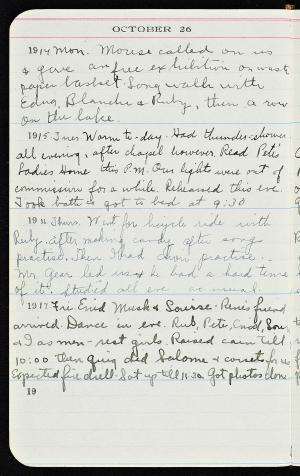 OCTOBER 26
1914 Mon. Mouse called on us
& gave an free exhibition on waste
paper basket. Long walk with
Edna, Blanche & Ruby, then a row
on the lake.
1915 Tues. Warm to-day. Had thunder-shower
all evening, after chapel however. Read Pete's
Ladies Home this P.M. Our lights were out of
commission for a while. Rehearsed this eve.
Took bath & got to bed at 9:30
1916 Thurs. Went for bicycle ride with
Ruby after making candy after song
practise. Then I had drum practise.
Mr. Gear led us & he had a hard time
of it. Studied all eve as usual.
1917 Fri. Enid Musk & Louise Rene's friend
arrived. Dance in eve. Rub, Pete, Enid, Lou,
& I as men - rest girls. Raised cain till
10:00 Then did Salome &
Expected fire drill. Sat up till 11:30. Got photos done
19